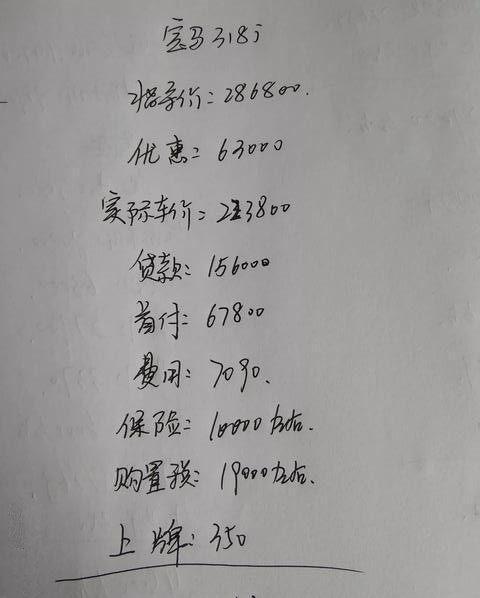 宝马318i
指导价：286800.
优惠：63000
实际车价：223800
贷款：156000
首付：67800
费用：7090.
保险：10000左右.
购置税：19000左右.
上牌：350